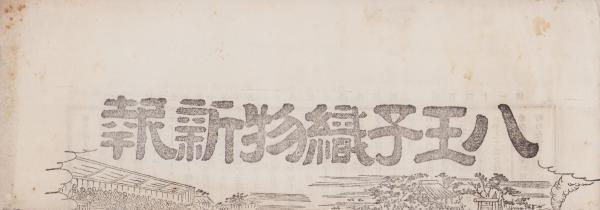 八王子織物新報